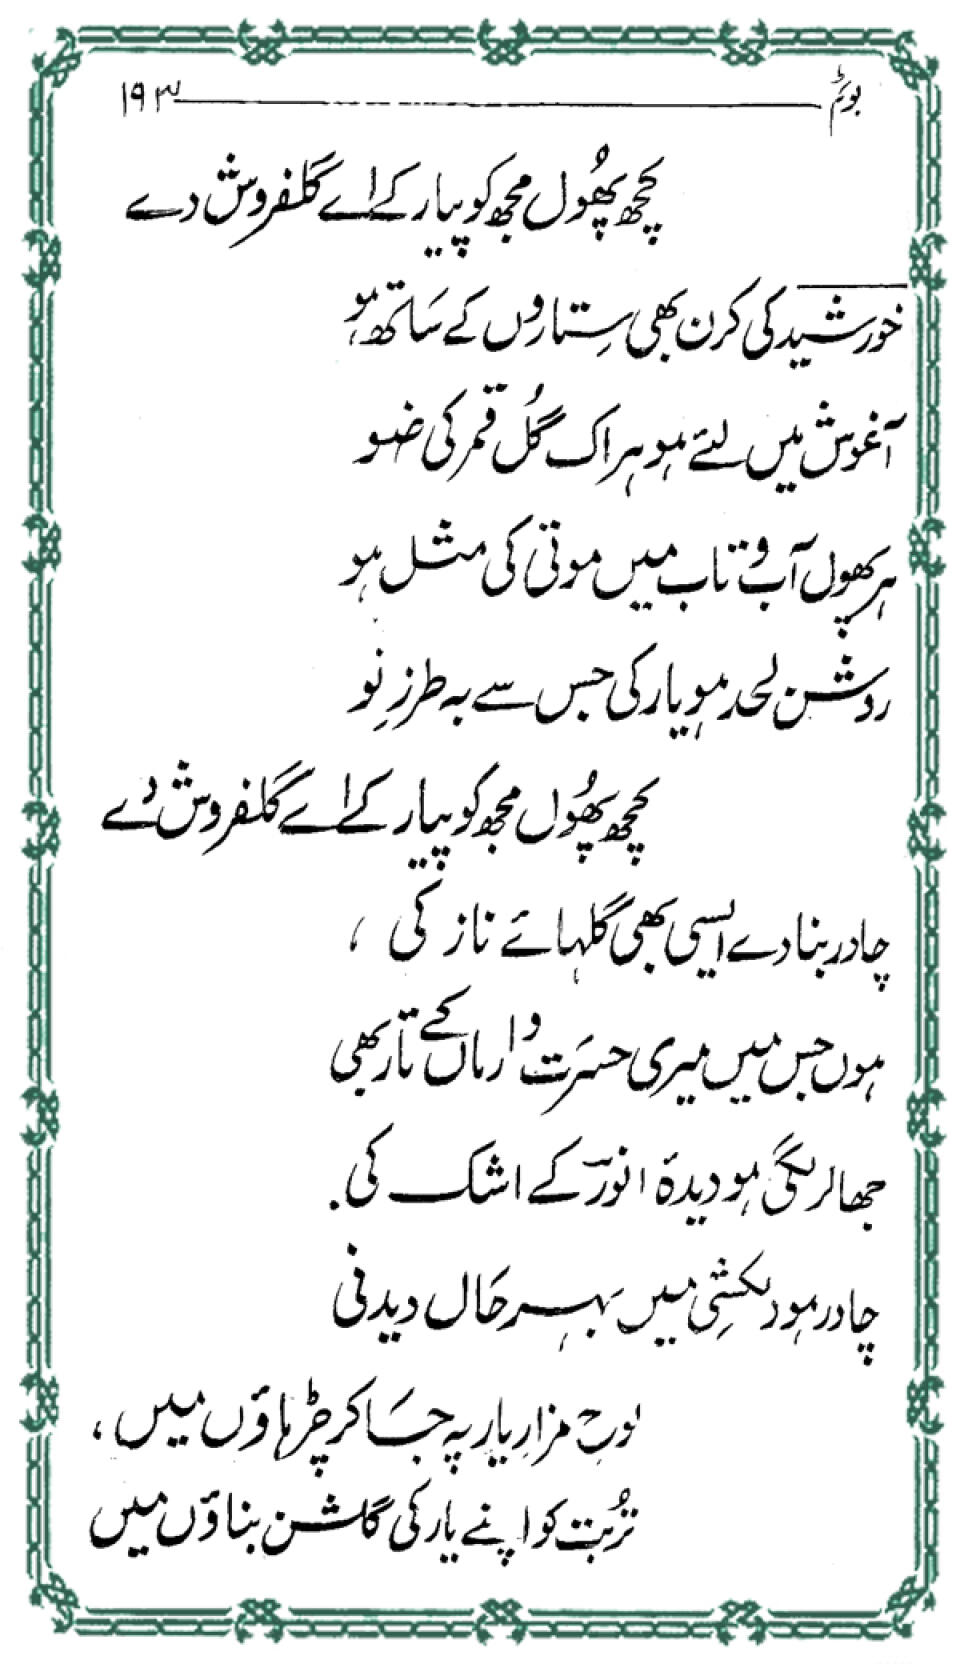 بوئڑ ۱۹۳
کچھ پھُول مجھ کو پیار کے اے گلفروش دے
خورشید کی کرن بھی سِتاروں کے سَاتھ ہو
آغوش میں لئے ہو ہر اک گُل قمر کی ضو
ہر پھول آب و تاب میں موتی کی مثل ہو
روشن لحد ہو یار کی جس سے بہ طرزِ نَو
کچھ پھُول مجھ کو پیار کے اے گلفروش دے
چادر بنا دے ایسی بھی گلہائے ناز کی ،
ہوں جس میں میری حسرَت و ارماں کے تار بھی
جھالر لگی ہو دیدۂ انورؔ کے اشک کی .
چادر ہو دلکشِی میں بہر حَال دیدنی
لوحِ مزارِ یار پہ جَا کر چڑہاؤں میں ،
تُربت کو اپنے یار کی گلشن بناؤں میں